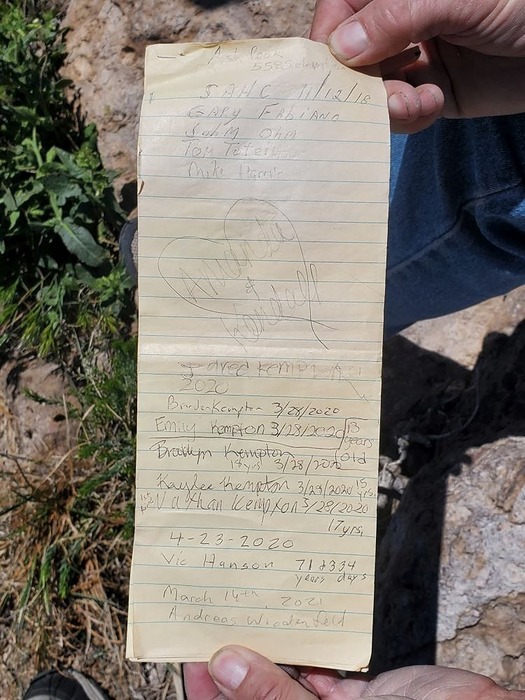 Ash Peak
SAHC 11/12/18
GARY FABIANO
JOHM OHM
TOM
Mike Harris
Amanda
&
Kendall
Jared Kempton
2020
Braden Kempton 3/28/2020
Emily Kempton 3/28/2020 13 years old
Brooklyn Kempton
3/28/2020
Kaylee Kempton 3/29/2020 15 yrs.
Nathan Kempton 3/29/2020
17 yrs.
4-23-2020
Vic Hanson 71 & 334
years days
March 14th, 2021
Andreas Wiedenfeld